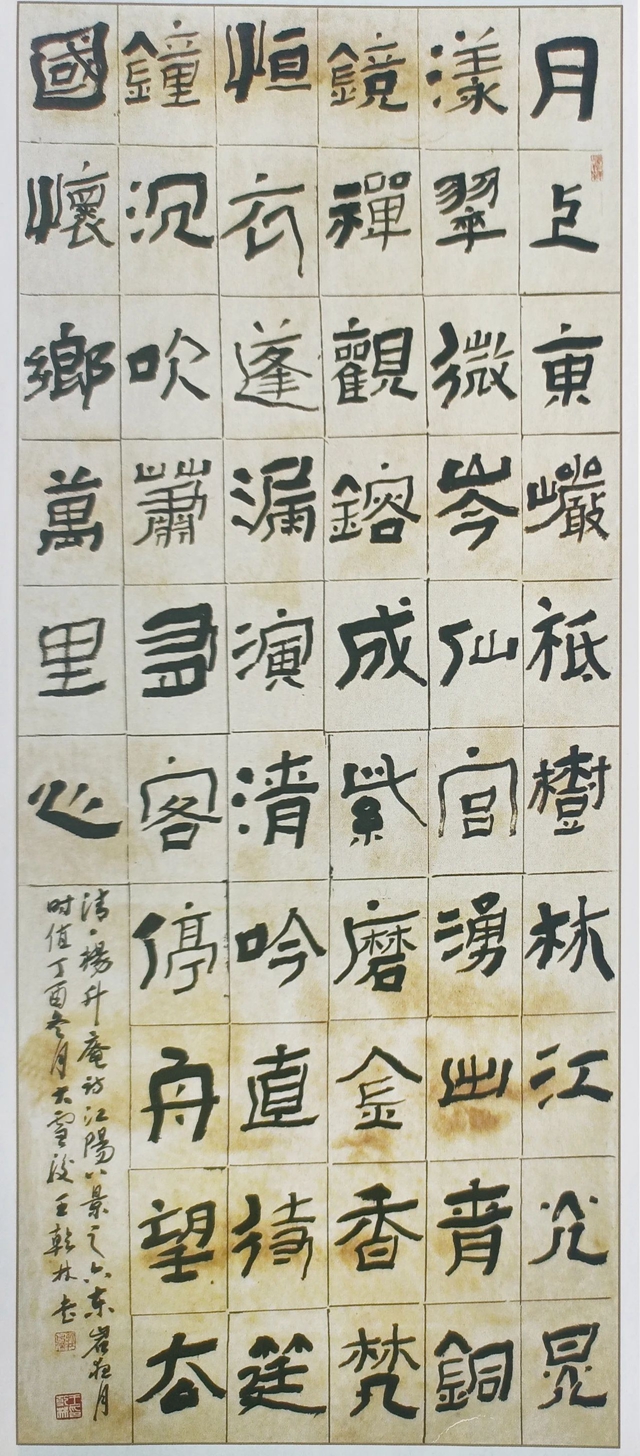 月上東巖祗樹林江光晃
漾翠微岑仙宮湧出青銅
鏡禪觀鎔成紫磨金香梵
恒衣蓬漏演清吟直待筵
鐘沉吹簫尋客停舟望去
國懷鄉萬里心
清·楊升庵詩江陽八景之六東岩夜月
时值丁酉冬月大雪後王乾林書